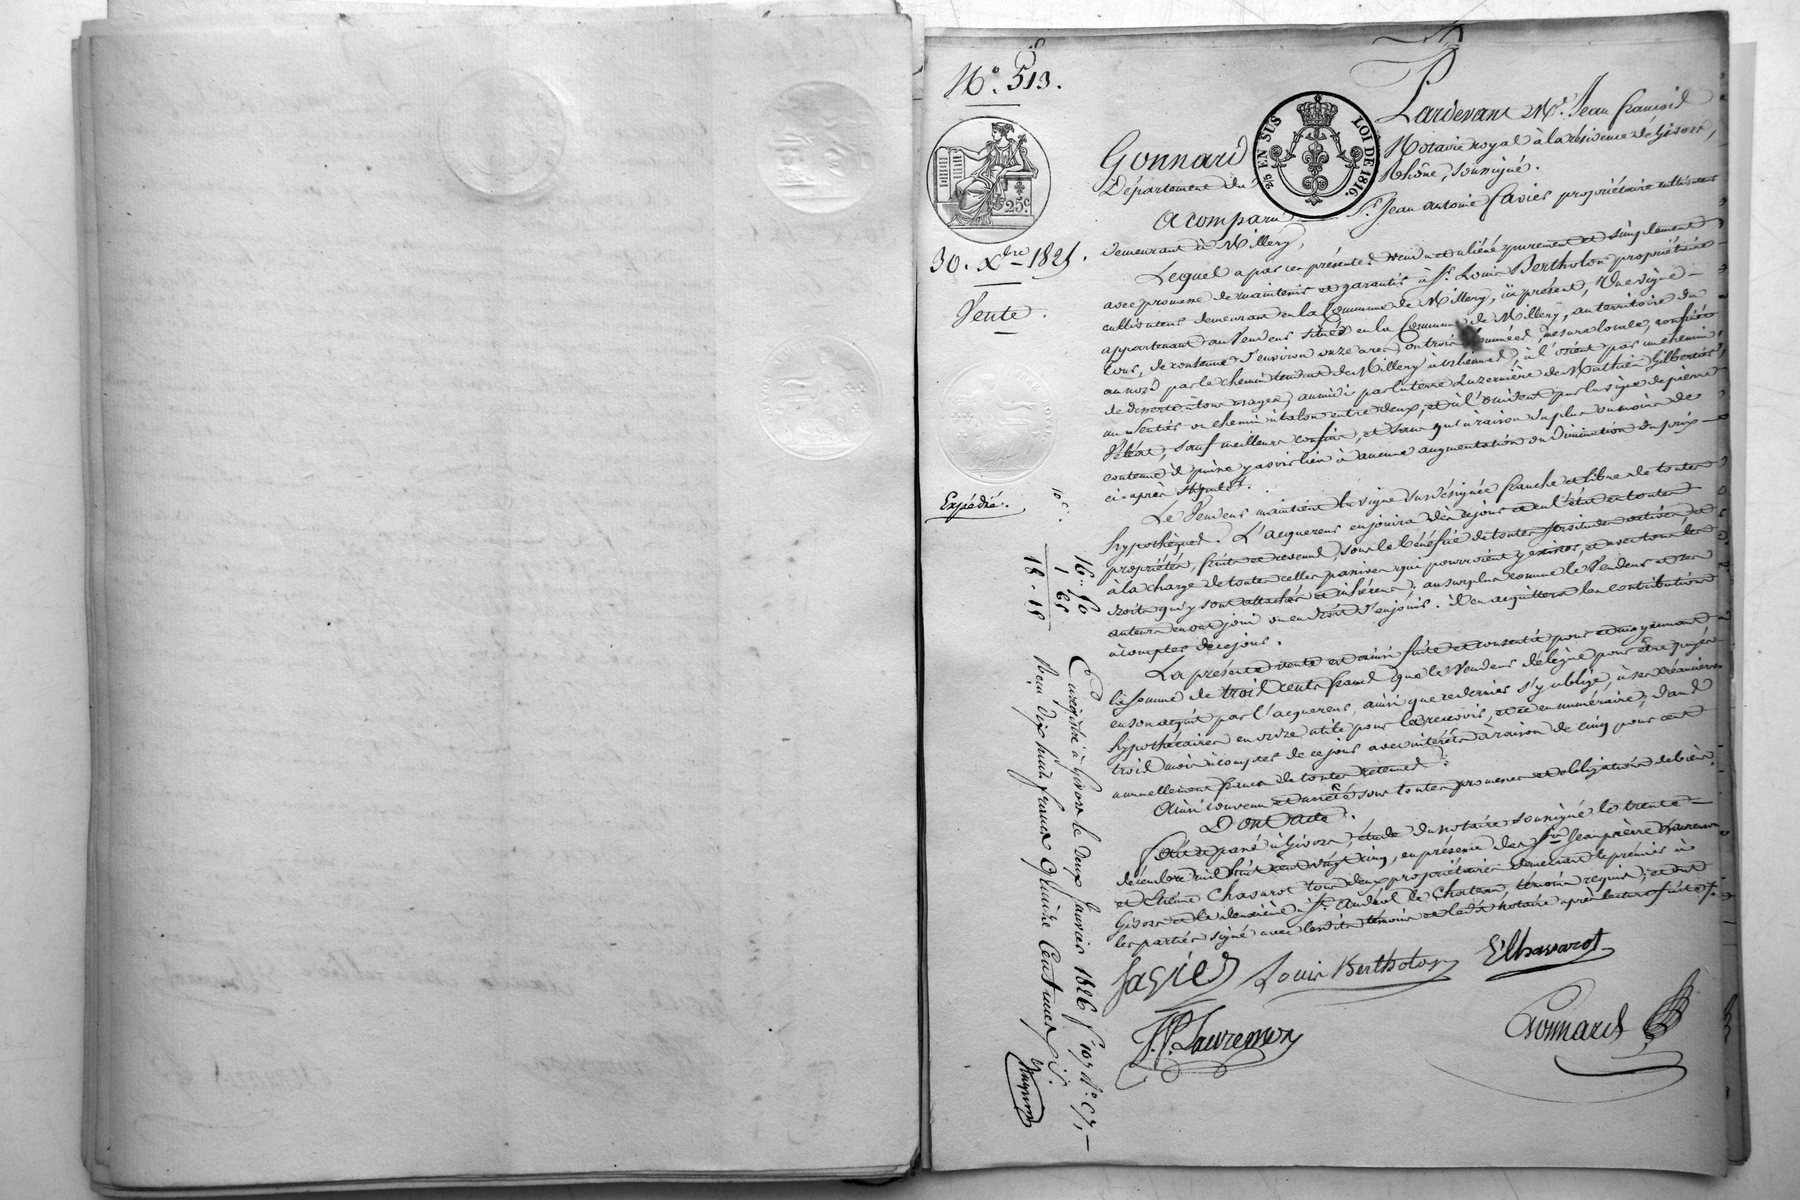 N.° 513.
25c
30. Xbre 1825.
Vente.
Expédié.
2/5 EN SUS LOI DE 1816.
Pardevant Me. Jean François
Gonnard Notaire royal à la résidence de Givors,
Département du Rhône, soussigné.
A comparu Sr. Jean Antoine Favier propriétaire cultivateur
demeurant à Millery,
Lequel a par ces présentes vendu et aliéné purement et simplement
avec promesse de maintenir et garantir à Sr. Louis Bertholon propriétaire
cultivateur demeurant en la Commune de Millery, ici présent, Une vigne
appartenant au Vendeur située en la Commune de Millery, au territoire du
de contenue d'environ onze ares, ou trois mesure locale, confinée
au nord par le chemin tendant de Millery à à l'orient par un chemin
de desserte à tous usages, au midi par la terre Luzernière de Mathieu Gilbertier,
un sentier ou chemin à talon entre deux, et à l'occident par la vigne de pierre
sauf meilleurs confins, et sans qu'à raison du plus ou moins de
contenue il puisse y avoir lieu à aucune augmentation ou diminution du prix
ci-après stipulé.
Le Vendeur maintient la vigne sus désignée franche et libre de toutes
hypothèques. L'acquéreur en jouira dès ce jour et en l'état en toutes
propriétés, fruits et revenus, sous le bénéfice de toutes servitudes actives et
à la charge de toutes celles passives qui pourroient y exister, et avec tous les
droits qui y sont attachés et inhérens, au surplus comme le Vendeur et ses
auteurs en ont joui ou eu droit d'en jouir. Il en acquittera les contributions
à compter de ce jour.
La présente vente est ainsi faite et consentie pour et moyennant
la somme de trois cents francs que le Vendeur délègue pour être payée
en son acquit par l'acquéreur, ainsi que ce dernier s'y oblige, à ses créanciers
hypothécaires en ordre utile pour la recevoir, et ce en numéraire, dans
trois mois à compter de ce jour avec intérêts à raison de cinq pour cent
annuellement francs de toutes retenues.
Ainsi convenu et arrêté sous toutes promesses et obligations de biens.
Dont acte.
Fait et passé à Givors, étude du notaire soussigné le trente
décembre mil huit cent vingt cinq, en présence des Srs. Jean pierre Lauremson
et Etienne Chavarot tous deux propriétaires demeurant le premier à
Givors et le deuxième à St. Andéol le Chateau, témoins requis; et ont
les parties signé avec lesdits témoins et ledit notaire après lecture faite.
Favier Louis Bertholon E Chavarot
J.P. Lauremson Gonnard
10c.
16.. 50
1 65
18 . 15
Enregistré à Givors le deux Janvier 1826 f° 107 Ro. C7,
Reçu dix huit francs quinze centimes